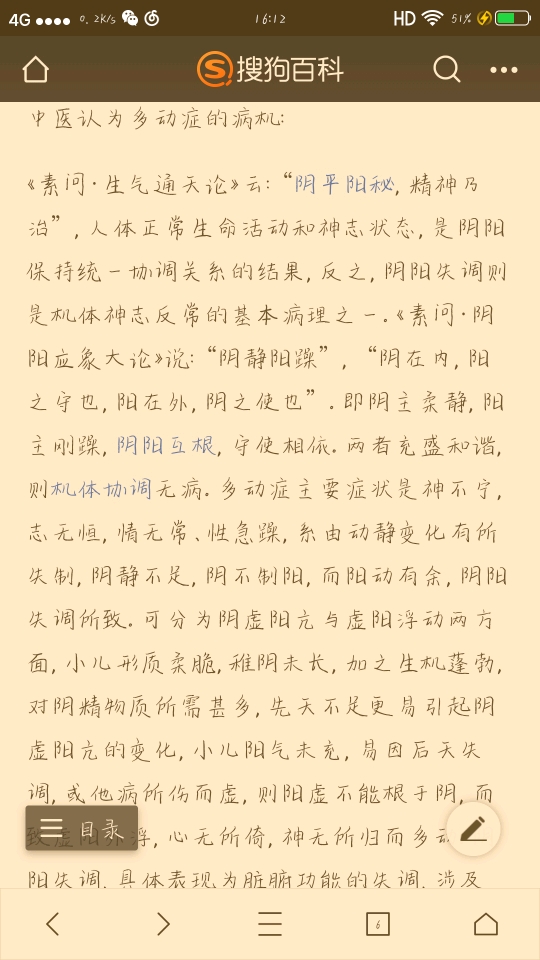 4G 0.2K/s 16:12 HD 51%
搜狗百科
中医认为多动症的病机:
《素问·生气通天论》云:“阴平阳秘,精神乃
治”,人体正常生命活动和神志状态,是阴阳
保持统一协调关系的结果,反之,阴阳失调则
是机体神志反常的基本病理之一。《素问·阴
阳应象大论》说:“阴静阳躁”,“阴在内,阳
之守也,阳在外,阴之使也”。即阴主柔静,阳
主刚躁,阴阳互根,守使相依。两者充盛和谐,
则机体协调无病。多动症主要症状是神不宁,
志无恒,情无常、性急躁,系由动静变化有所
失制,阴静不足,阴不制阳,而阳动有余,阴阳
失调所致。可分为阴虚阳亢与虚阳浮动两方
面,小儿形质柔脆,稚阴未长,加之生机蓬勃,
对阴精物质所需甚多,先天不足更易引起阴
虚阳亢的变化,小儿阳气未充,易因后天失
调,或他病所伤而虚,则阳虚不能根于阴,而
目录
浮,心无所倚,神无所归而多
阳失调,具体表现为脏腑功能的失调,涉及
6